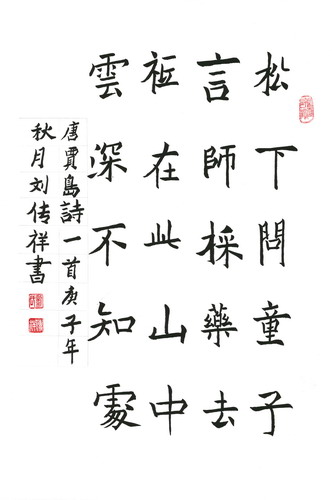 松下問童子
言師採藥去
祗在此山中
雲深不知處
唐賈島詩一首庚子年
秋月刘传祥書